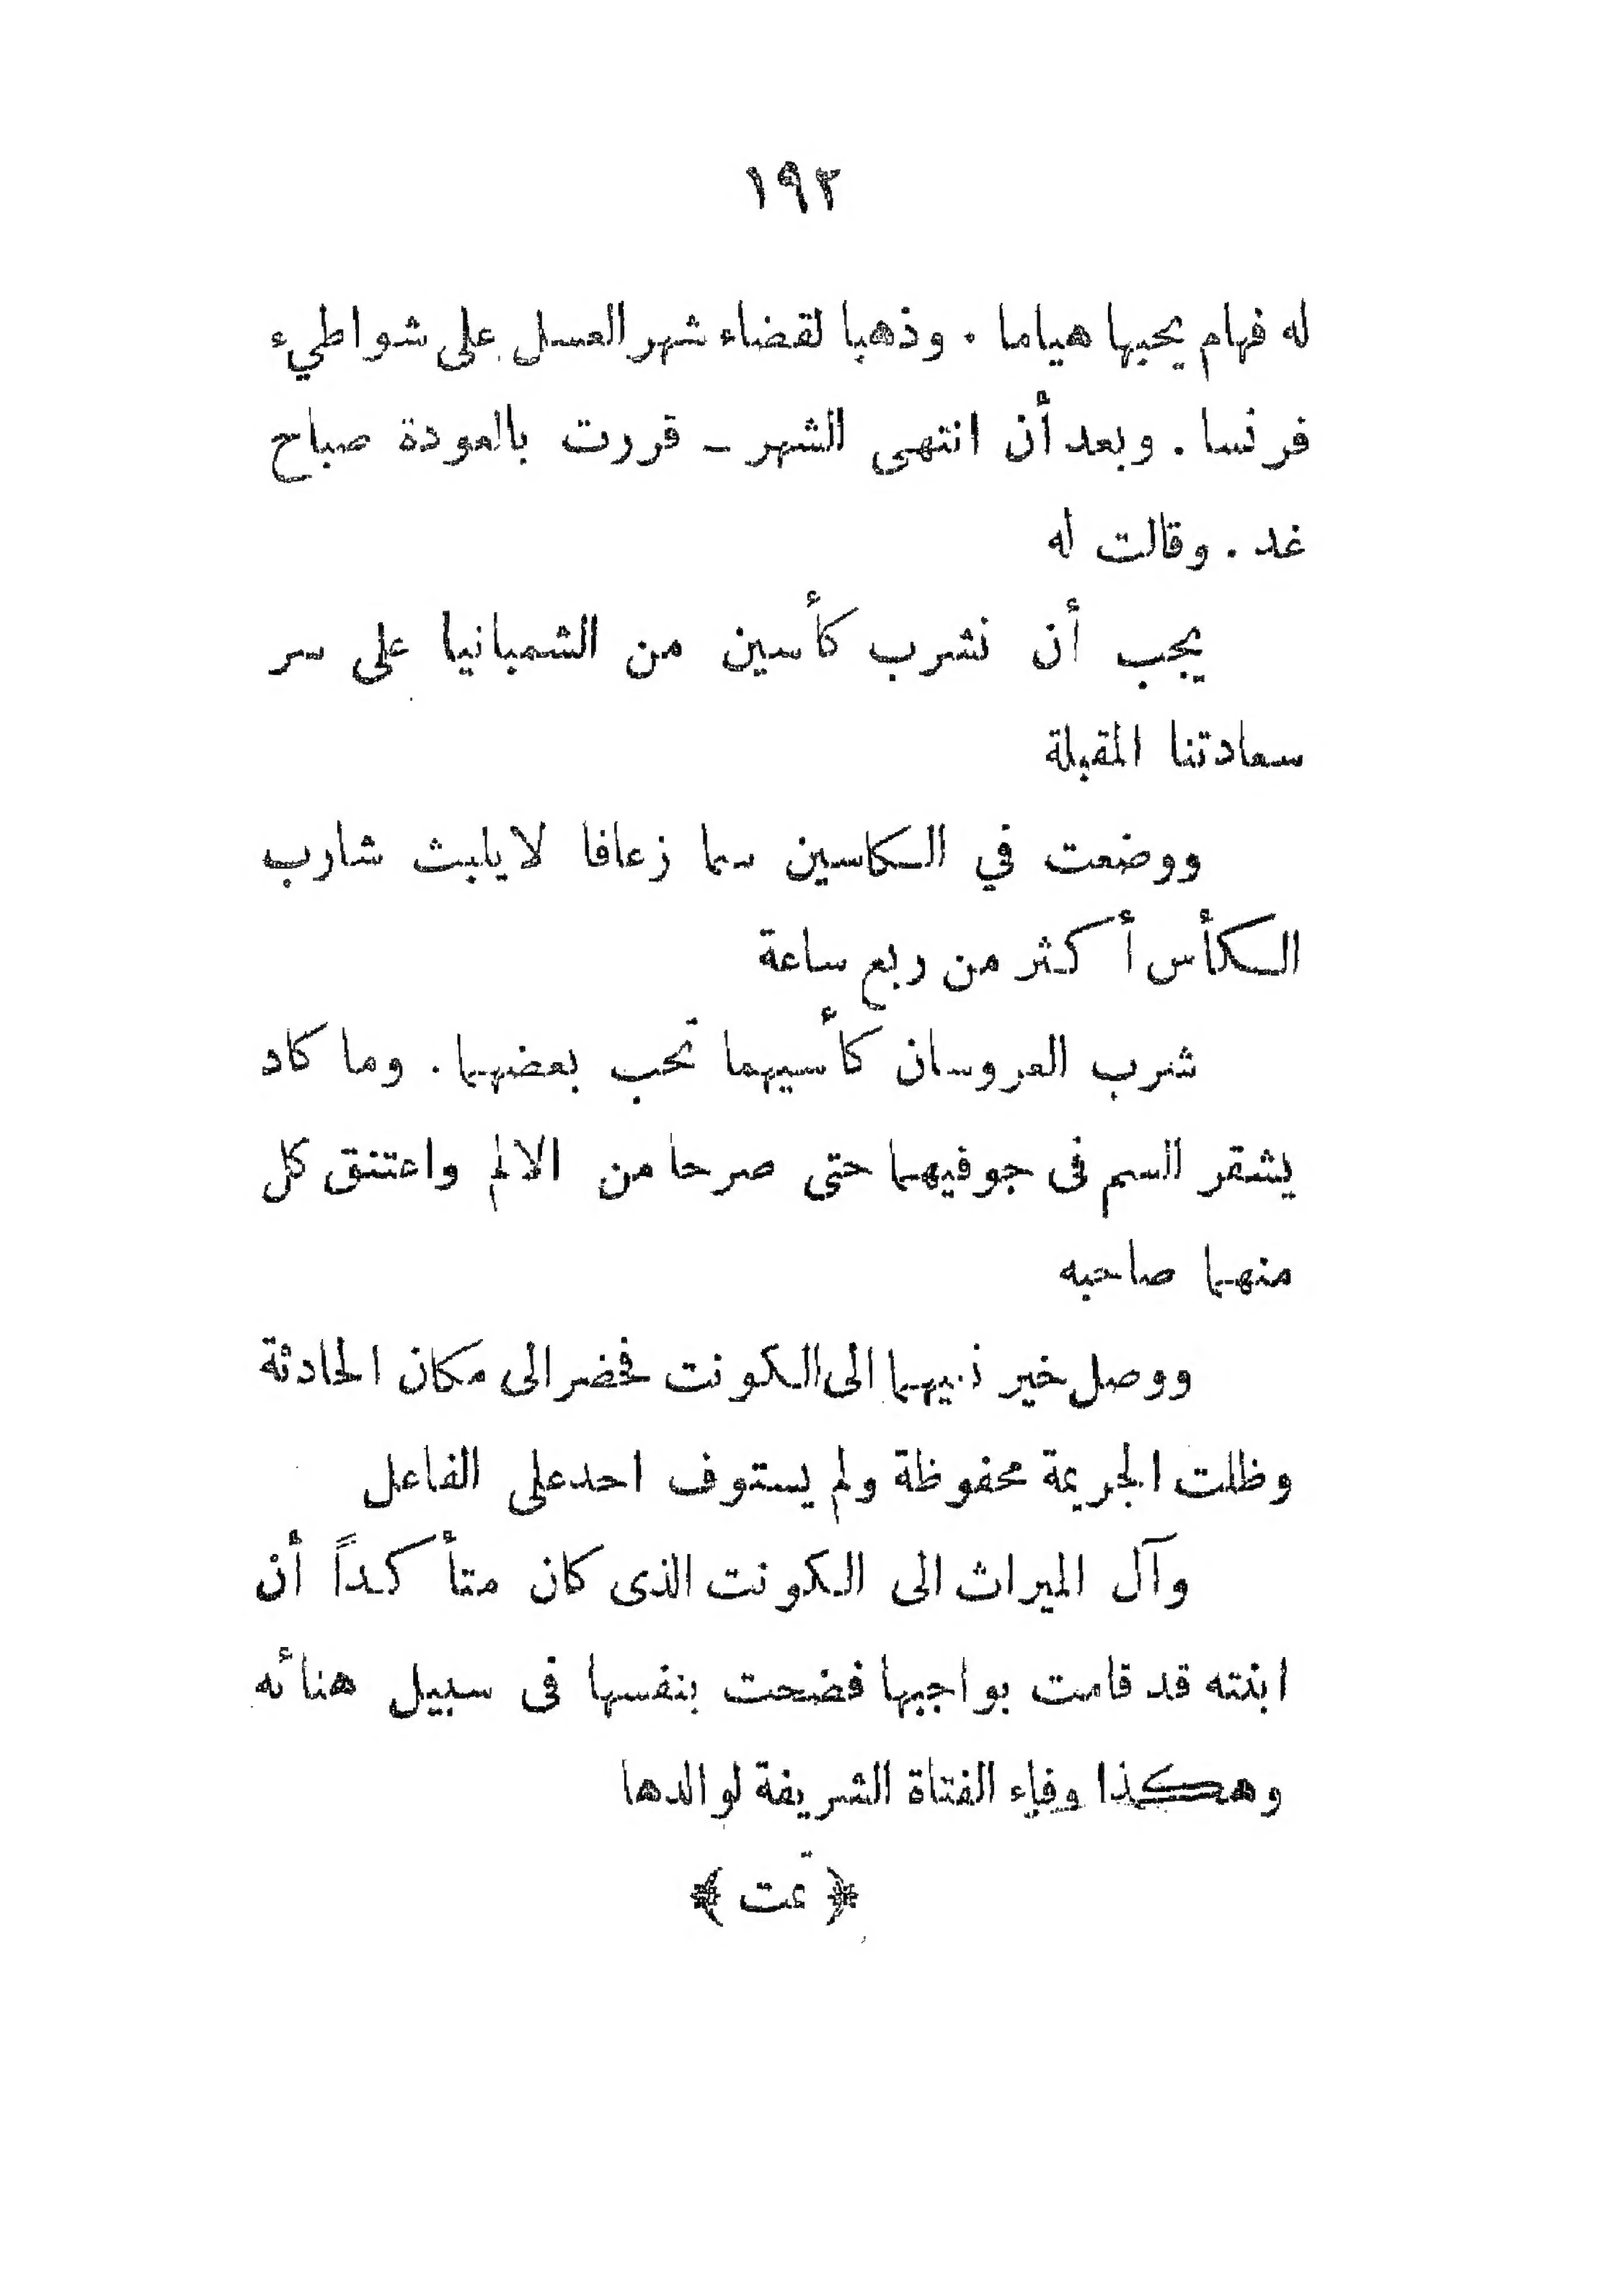 ١٩٢
له فهام يحبها هياما . وذهبا لقضاء شهر العسل على شواطيء
فرنسا . وبعد أن انتهى الشهر ـ قررت بالعودة صباح
غد . وقالت له
يجب أن نشرب كأسين من الشمبانيا على سر
سعادتنا المقبلة
ووضعت في الكاسين سما زعافا لا يلبث شارب
الكأس أكثر من ربع ساعة
شرب العروسان كأسيهما نحب بعضهما . وما كاد
يشقر السم فى جوفيهما حتى صرحا من الالم واعتنق كل
منهما صاحبه
ووصل خبر الى الكونت فحضر الى مكان الحادثة
وظلت الجريمة محفوظة ولم يستوف احد على الفاعل
وآل الميراث الى الكونت الذى كان متأكداً أن
ابنته قد قامت بواجبها فضحت بنفسها فى سبيل هنائه
وهكذا وفاء الفتاة الشريفة لوالدها
﴿ تمت ﴾